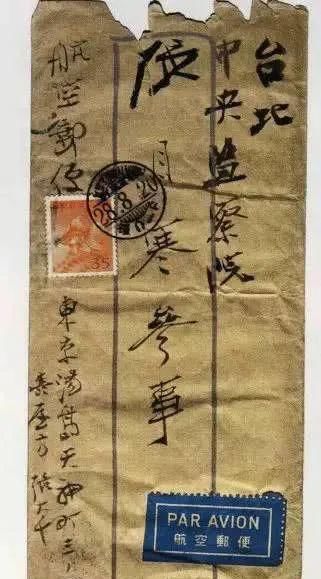 台北
中央监察院
張目寒參事
航空郵便
東京湯島天神町三ノ
屋方 張大千
28.8.20
35
PAR AVION
航空郵便